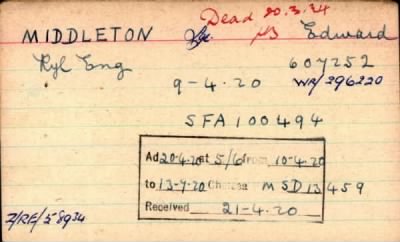 Dead 20.3.34
MIDDLETON Edward
Ryl Eng 607252
9-4.20 WR/296220
SFA100494
Ad 20-4.20 at 5/6 from 10-4.20
to 13-9.20 MSD13459
Received 21-4.20
Z/RE/58934